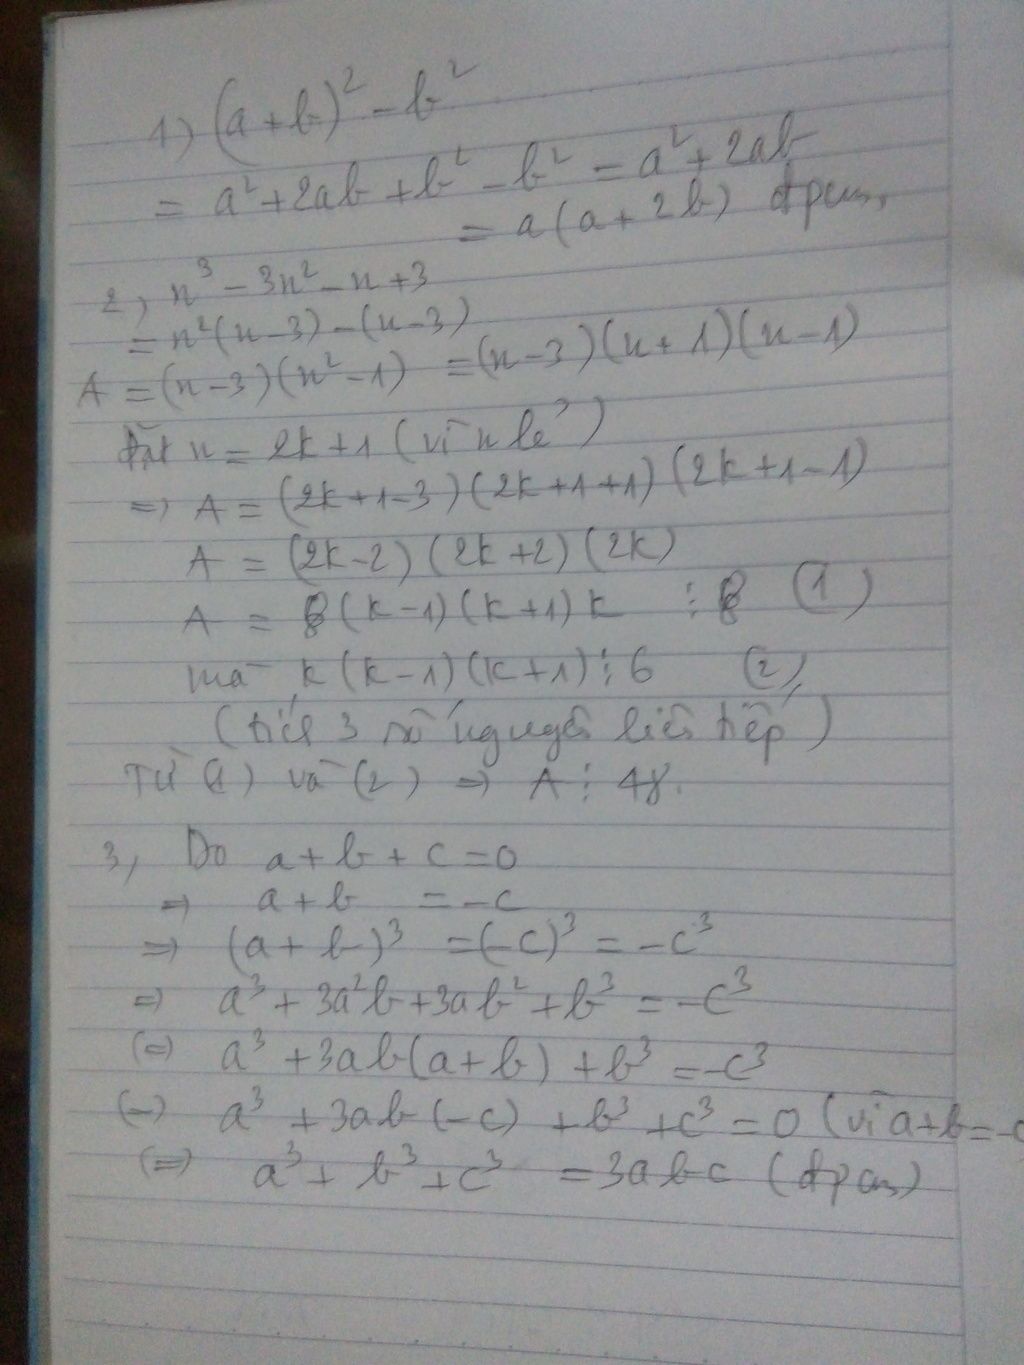 1) (a+b)² - b²
= a² + 2ab + b² - b² = a² + 2ab
= a(a + 2b) đpcm,
2, n³ - 3n² - n + 3
= n²(n - 3) - (n - 3)
A = (n - 3)(n² - 1) = (n - 3)(n + 1)(n - 1)
Đặt n = 2k + 1 (vì n lẻ)
=> A = (2k + 1 - 3)(2k + 1 + 1)(2k + 1 - 1)
A = (2k - 2)(2k + 2)(2k)
A = 8(k - 1)(k + 1)k ⋮ 8 (1)
mà k(k - 1)(k + 1) ⋮ 6 (2)
(tích 3 số nguyên liên tiếp)
Từ (1) và (2) => A ⋮ 48.
3, Do a + b + c = 0
=> a + b = -c
=> (a + b)³ = (-c)³ = -c³
=> a³ + 3a²b + 3ab² + b³ = -c³
(=) a³ + 3ab(a + b) + b³ = -c³
(=) a³ + 3ab(-c) + b³ + c³ = 0 (vì a + b = -c
(=) a³ + b³ + c³ = 3abc (đpcm)